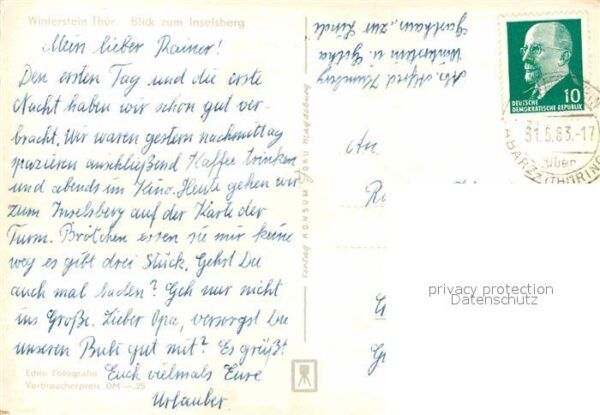 Winterstein Thür. Blick zum Inselsberg
Mein lieber Rainer!
Den ersten Tag und die erste
Nacht haben wir schon gut ver-
bracht. Wir waren gestern nachmittag
spazieren anschließend Kaffee trinken
und abends im Kino. Heute gehen wir
zum Inselsberg auf der Karte der
Turm. Brötchen essen sie mir keine
weg es gibt drei Stück. Gehst Du
auch mal baden? Geh nur nicht
ins Große. Lieber Opa, versorgst Du
unseren Bubi gut mit? Es grüßt
Euch vielmals Eure
Urlauber
Edith Fotografie
Verbraucherpreis DM —,25
Verlag KONSUM FOKO Magdeburg
Abs. Alfred
Winterstein ü. Gotha
Gasthaus „zur Linde
DEUTSCHE
DEMOKRATISCHE REPUBLIK
10
31.5.63.-17
über
An
privacy protection
Datenschutz